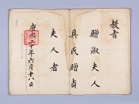 教書
贈淑夫人
吳氏贈貞
夫人者
康熙二十年六月十八日